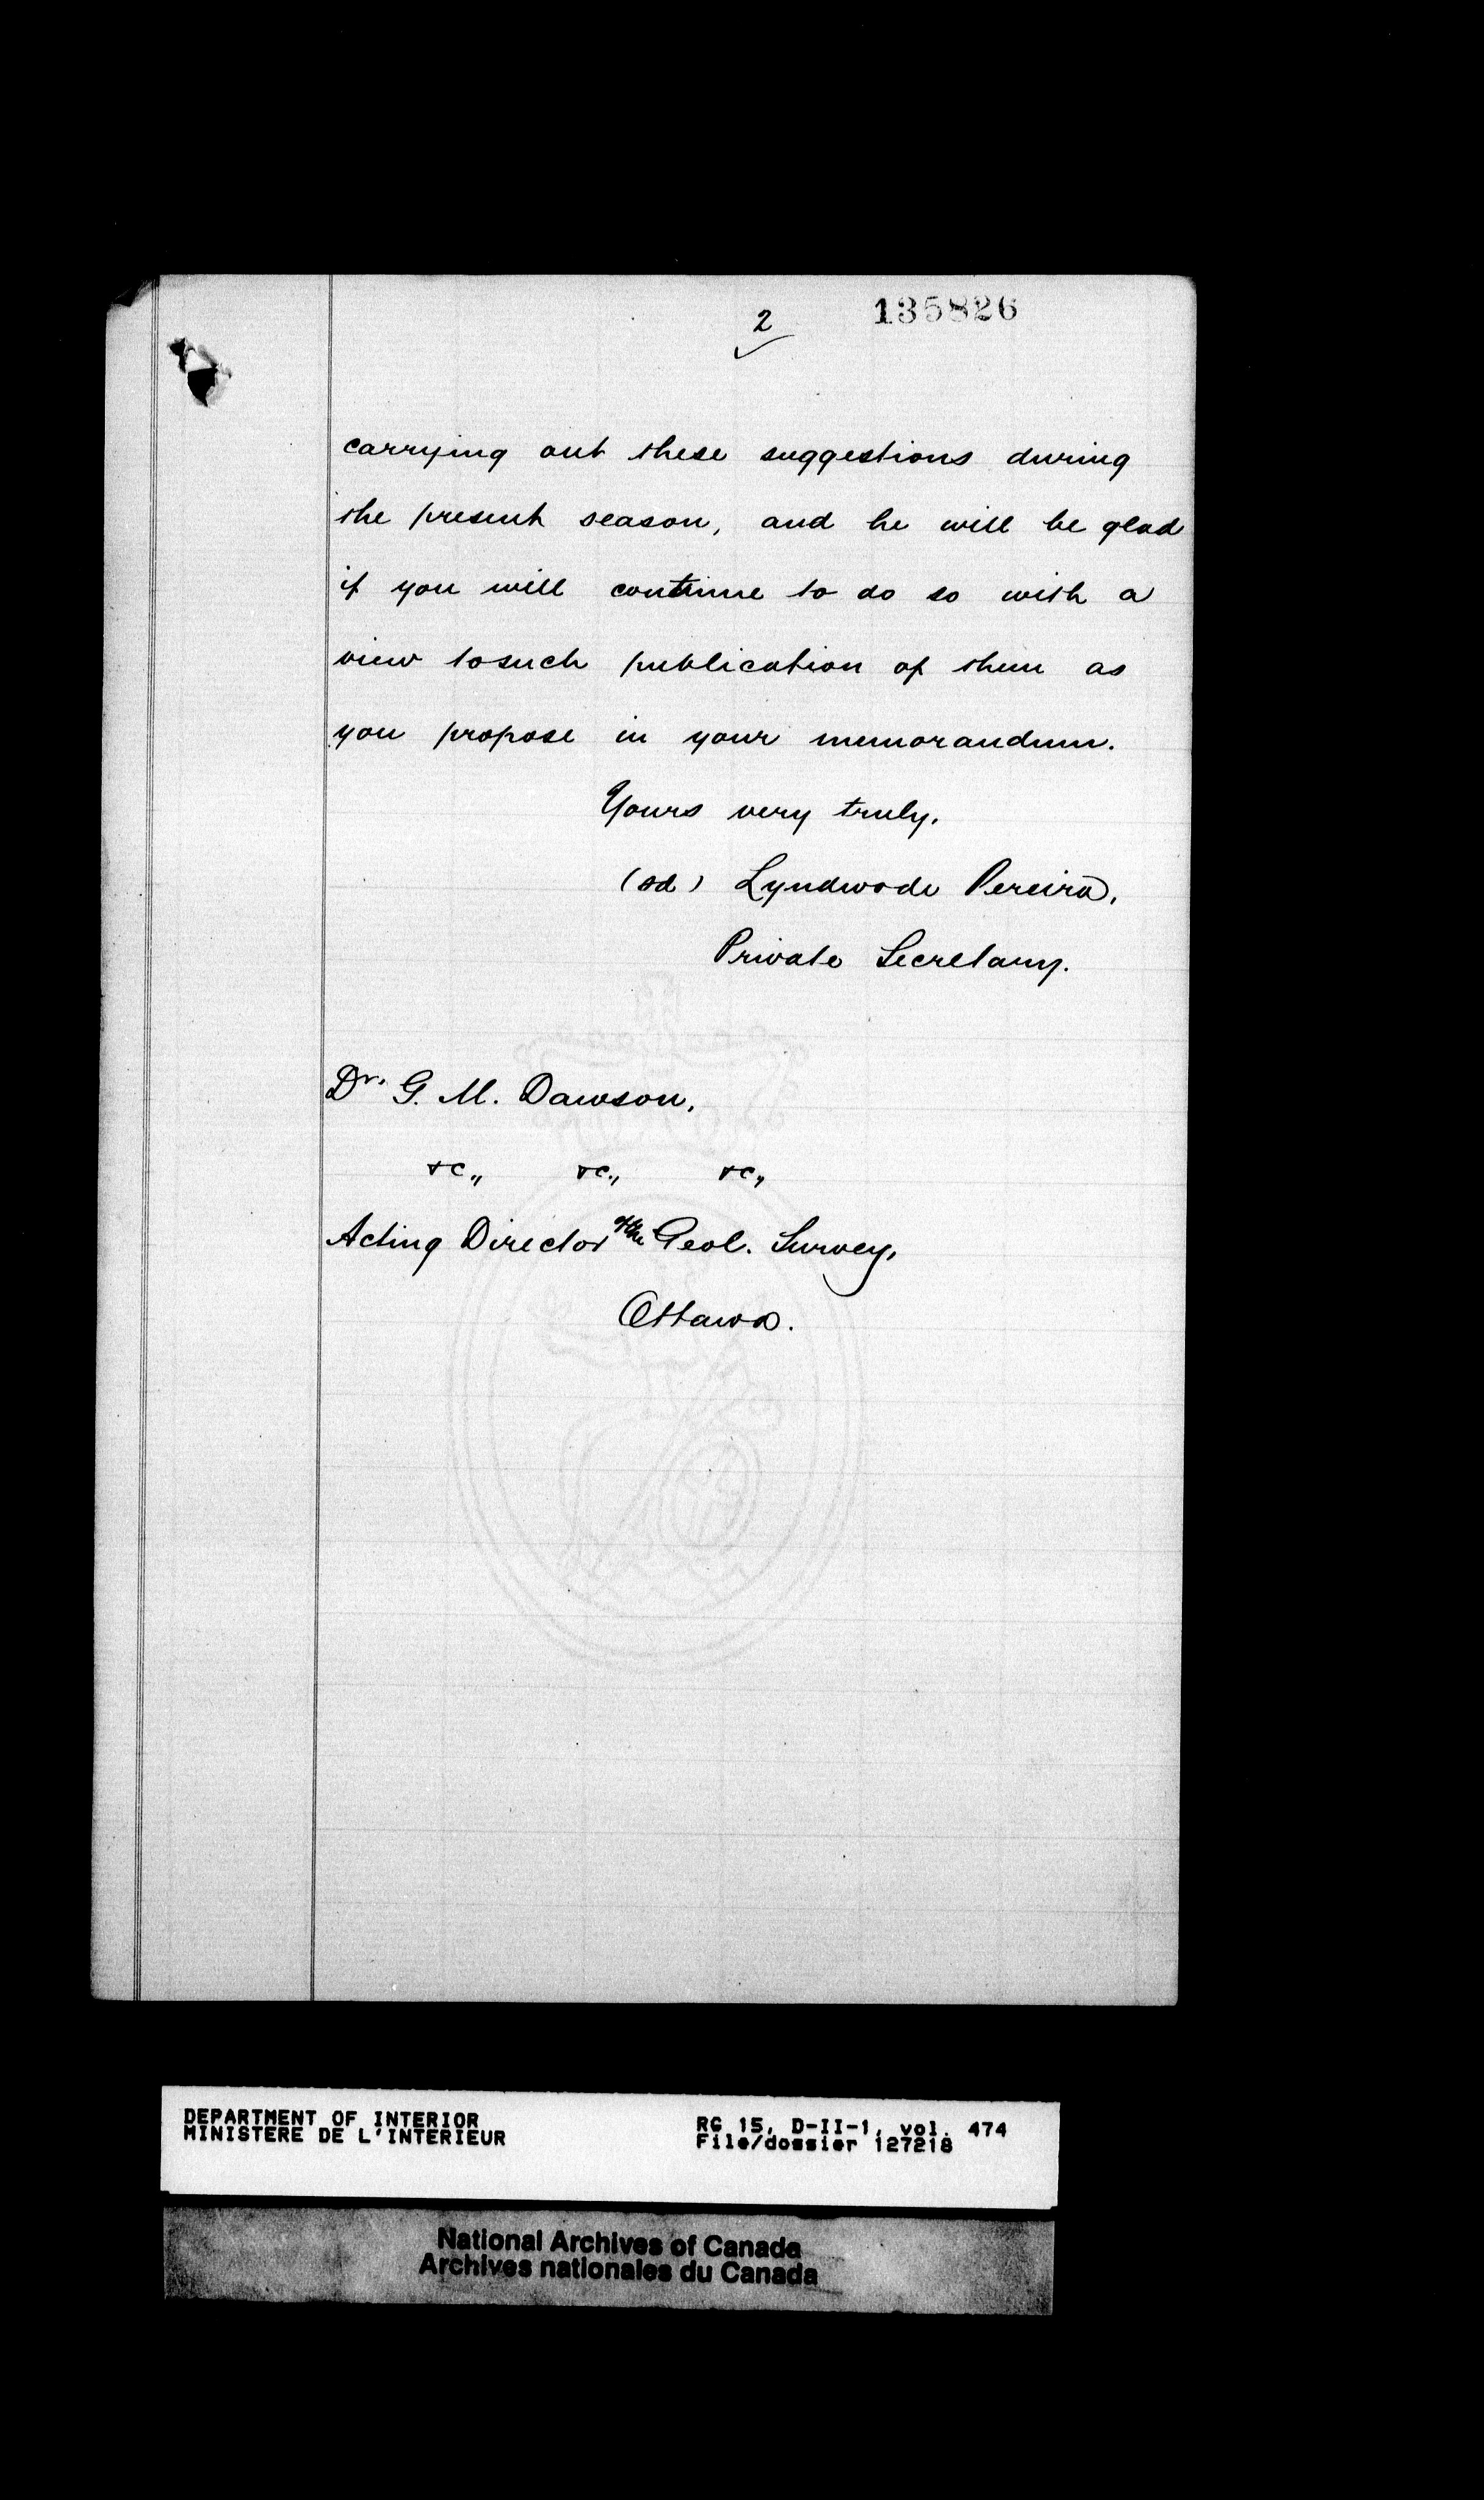 2
135826
carrying out these suggestions during
the present season, and he will be glad
if you will continue to do so with a
view to such publication of them as
you propose in your memorandum.
Yours very truly,
(sd) Lyndwode Pereira,
Private Secretary.
Dr. G. M. Dawson,
&c., &c., &c.,
Acting Director of the Geol. Survey,
Ottawa.
DEPARTMENT OF INTERIOR
MINISTERE DE L'INTERIEUR
RG 15, D-II-1, vol. 474
File/dossier 127218
National Archives of Canada
Archives nationales du Canada